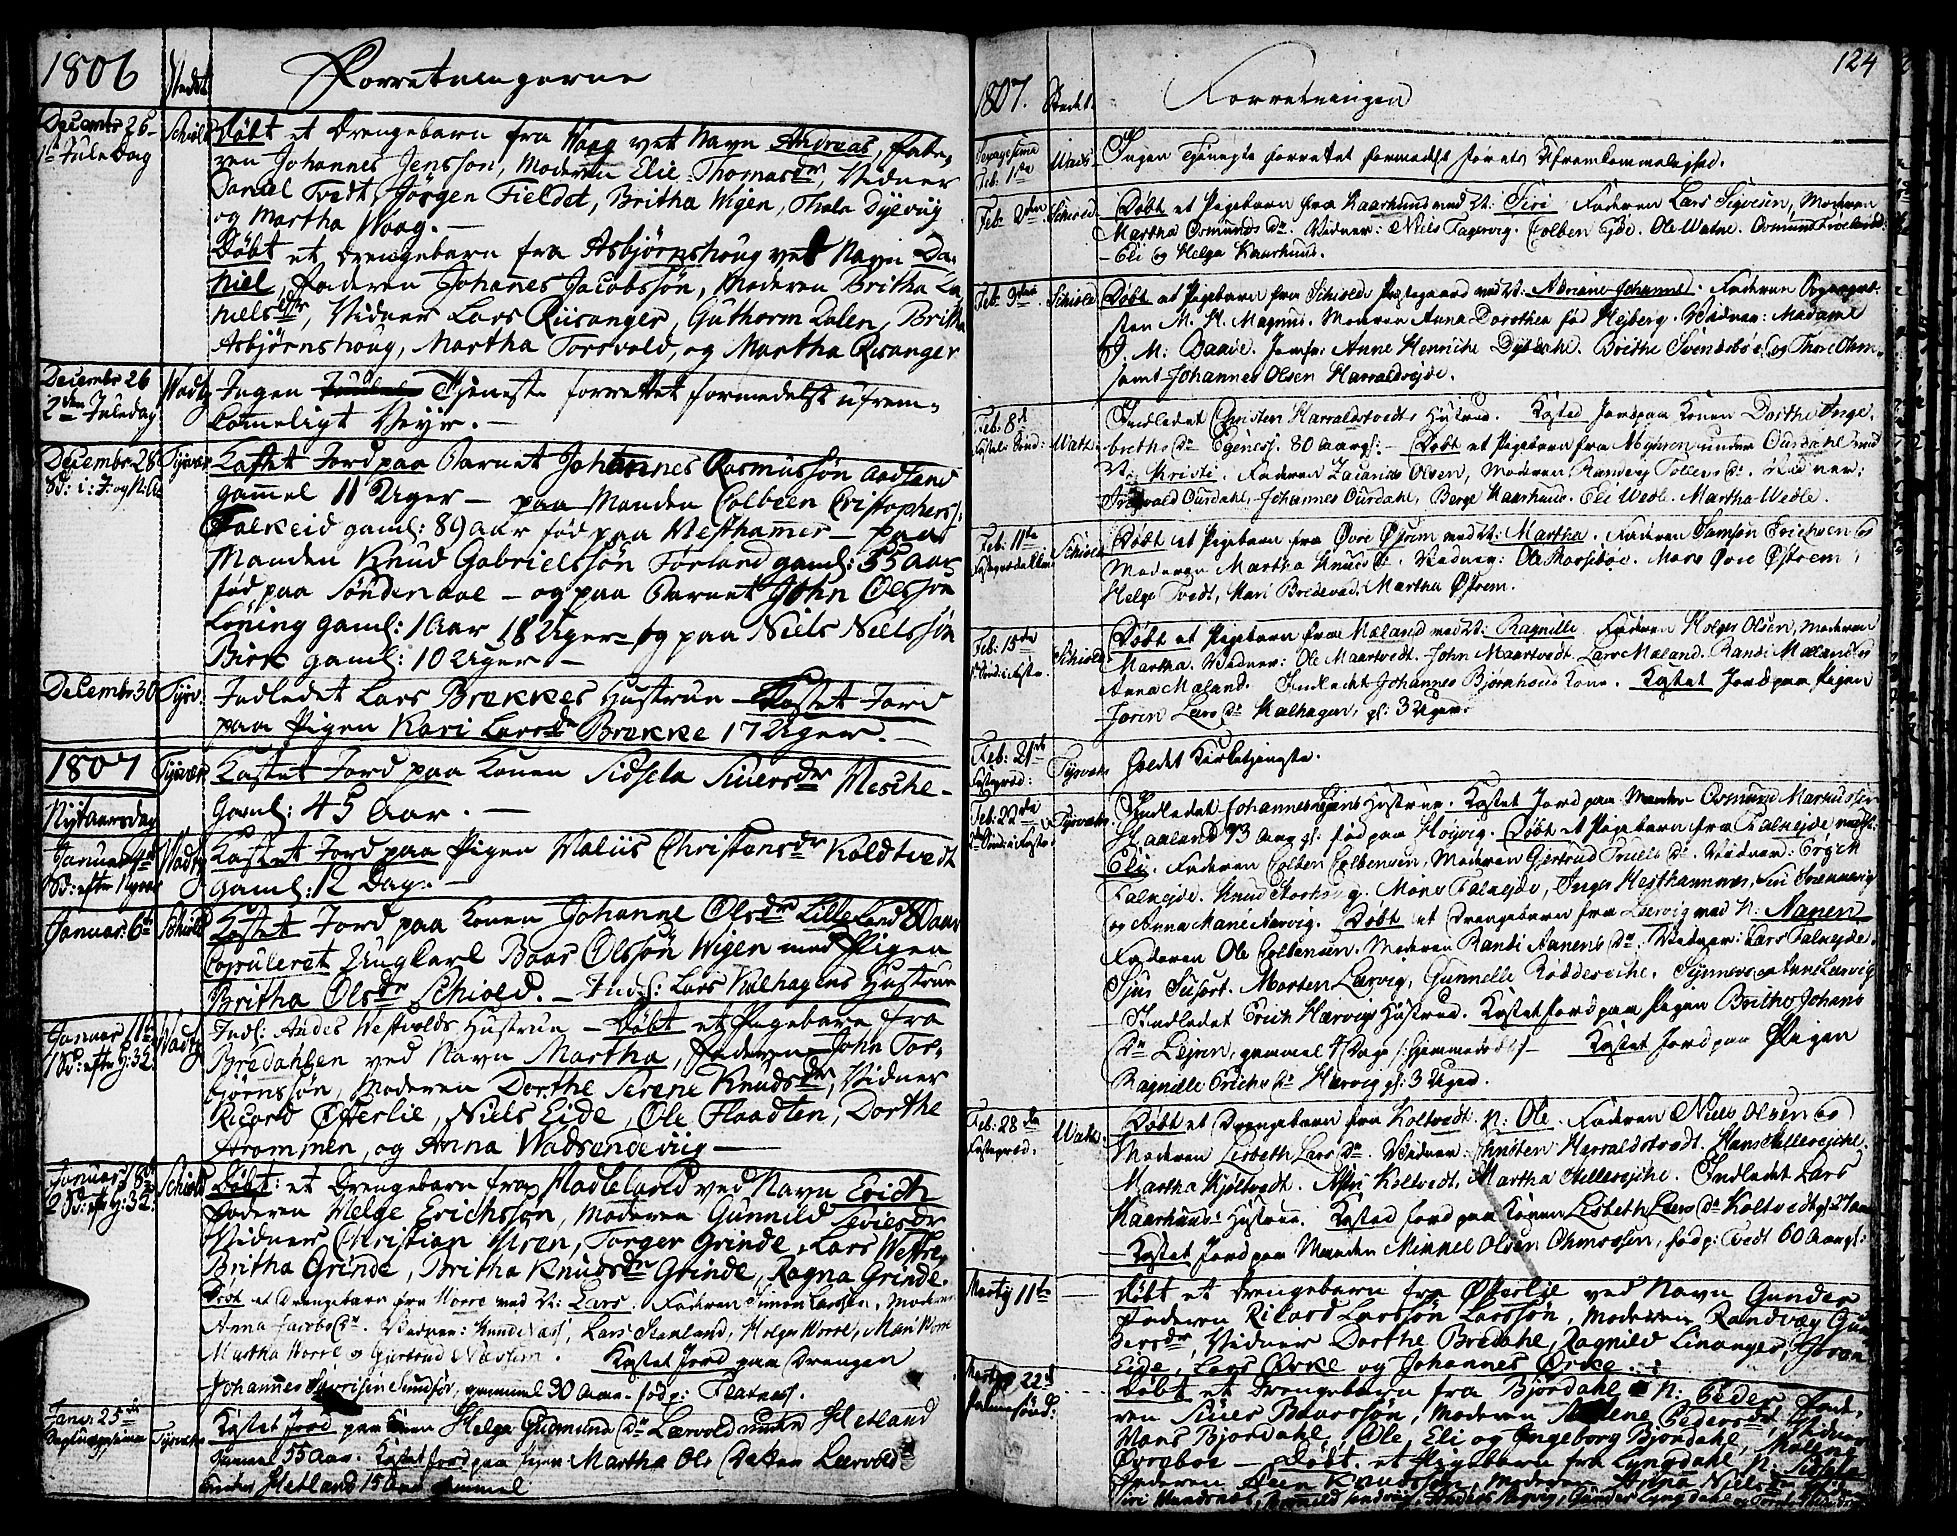 1806 Stedet Forretningerne
Decembr 26 1ste Juledag Schiold Døbt et Drengebarn fra Waag ved Navn Andreas, Fade-
ren Johannes Jensson, Moderen Elie Thomasdr, Vidner
Daniel Tvedt, Jörgen Fieldet, Britha Wigen, Thala Dyevig
og Martha Waag. —
Døbt et Drengebarn fra Asbjørnshoug ved Navn Da-
niel, Faderen Johanes Jacobssön, Moderen Britha Da-
nielsdr, Vidner Lars Riisanger, Guthorm Dalen, Britha
Asbjørnshoug, Martha Torsvold, og Martha Risanger
Decembr 26 2den Juledag Wads Ingen Tjeneste forrettet formedelst ufrem-
komeligt Veyr. —
Decembr 28 Tysvær Kastet Jord paa Barnet Johannes Rasmussön Aadland
gammel 11 Uger — paa Manden Colbeen Cristophers:
Falkeid gaml: 89 aar fød paa Nesthammer — paa
Manden Knud Gabrielssön Førland gaml: 55 Aar
fød paa Söndenaae — og paa Barnet John Olsson
Löning gaml: 1 Aar 18 Uger — og paa Niels Nielssön
Birk gaml: 10 Uger —
Decembr 30 Tysv: Indledet Lars Brekkes Hustrue — Kastet Jord
paa Pigen Kari Larsdr Brekke 17 Uger. —
1807 Tysvær Kastet Jord paa Konen Sidsela Siuersdr Nesche-
Nytaarsdag gaml: 45 Aar. —
Januar Wads Kastet Jord paa Pigen Maliis Christensdr Koldtvedt
gaml: 12 Dag. —
Januar. 6te Schiold Kastet Jord paa Konen Johanne Olsdr Lilleland 80 aar
Copuleret Ungkarl Baar Olssön Wigen med Pigen
Britha Olsdr Schiold. — Indl: Lars Kalhagens Hustrue
Januar 11te 1 Sd: efter H: 3 K: Wads Indl: Andes Westvolds Hustrue — Døbt et Pigebarn fra
Bredahlen ved Navn Martha, Faderen John Tor-
björnssön, Moderen Dorthe Serene Knudsdr, Vidner
Ricord Østerlie, Niels Eide, Ole Flaadten, Dorthe
Strommen, og Anna Wadsendevig —
Januar 18de 2 Sd: eft: H: 3 K: Schiold Døbt: et Drengebarn fra Hadleland ved Navn Erich
Faderen Helge Erichssön, Moderen Gunnild Seviesdr
Vidner Christian Uren, Torger Grinde, Lars Westre,
Britha Grinde, Britha Knudsdr Grinde, Ragna Grinde.
Døbt et Drengebarn fra Worre med N: Lars. Faderen Simon Larssen, Moderen
Anna Jacobsdr. Vadner: Knud Næss, Lars Stenland, Helge Worre, Mari Worre
Martha Worre og Giertrud Næssem. Kastet Jord paa Drengen
Johannes Sundför, gammel 30 Aar. fød p: Flatness.
Janr 25de Tysvær Kastet Jord paa Konen Helga Gudmunds Dr Lærvold under Hetland
gammel 55 Aar. Kastet Jord paa Pigen Martha Ols Datter Lærvold
under Hetland 15 Aar gammel
124
1807. Stedet. Forretningen
Sexagesima Feb. 1ste Wads Ingen Tjeneste forrettet formedelst Førets Ufremkommelighed.
Feb. 2den Schiold Døbt et Pigebarn fra Kaarhuus med N: Siri Faderen Lars Sigvesen, Moderen
Martha Osmunds Dr. Vadner: Niels Fagervig. Colben Eide. Ole Watne.
Eli og Helga Kaarhuus.
Feb: 3die Schiold Døbt et Pigebarn fra Schiolds Prestegaard med N: Adriane Johanne. Faderen
M. H. Magnus. Moderen Anna Dorothea fød Hejberg. Vadner: Madame
J. M: Baade. Jomfr: Anne Henriche Dyberke. Brithe Svendsböe og Thore Ohm
samt Johannes Olsen Harraldseide.
Feb: 8de Wats: Indledet Christen Harraldstvedts Hustrue. Kasted Jord paa Konen Dorthe Inge-
breths Dr Egeness. 80 Aar gl: — Døbt et Pigebarn fra under Ourdahl med
N: Kristi. Faderen Zacarias Olsen, Moderen Ranveg Tollevs Dr. Vadner:
Ourdahl, Johannes Ourdahl, Berge Kaarhuus. Eli Wedle. Martha Wedle.
Feb: 11te Schiold Døbt et Pigebarn fra Øvre Østrem med N: Martha. Faderen Samson Erichsen og
Moderen Martha Knuds Dr. Vadner: Ole Rossebøe. Mons Øvre Østrem,
Helge Tvedt, Kari Bredevad. Martha Østrem.
Feb: 15de Schiold Døbt et Pigebarn fra Mæland med N: Ragnille. Faderen Holger Olsen, Moderen
Martha. Vadner: Ole Maartvedt. John Maartvedt. Lars Mæland. Randi Mæland og
Anna Mæland. Indledt Johannes Bjørnhous Kone. Kastet Jord paa Pigen
Joren Lars Dr Kalhagen, gl: 3 Uger.
Feb: 21de Tysvær Holdet Kirketjeneste.
Feb: 22de Tysvær Indledet Johannes Hustrue. Kastet Jord paa Manden Osmund Markussen
Haaland 73 Aar gl: fød paa Høyvig. Døbt et Pigebarn fra Falkejde med N:
Eli. Faderen Colben Colbensen, Moderen Giertrud Truels Dr. Vadner:
Falkejde. Knud Storhoug. Mons Falkejde, Inger Hesthammer, Siri
og Anna Marie Hervig. Døbt et Drengebarn fra Lærvig med N: Nanen
Faderen Ole Colbensen. Moderen Randi Aanens Dr. Vadner: Lars Falkejde.
Sjur Susort. Morten Lærvig, Gunnelle Röddereiche. Lærvig
Indledet Erich Hervigs Hustrue. Kastet Jord paa Pigen Brithe Johans
Dr Lejren, gammel 4 Dage hjemmedøbt — Kastet Jord paa Pigen
Ragnille Erichs Dr Hervig gl: 3 Uger.
Feb: 28de Wats. Døbt et Drengebarn fra Koltvedt. N: Ole. Faderen Niels Olsen og
Moderen Lisbeth Lars Dr. Vadner: Christen Harraldstvedt. Hans
Martha Kjoltvedt. Koltvedt. Martha Indledet Lars
Kaarhuus Hustrue. Kasted Jord paa Konen Lisbeth Lars Dr Koltvedt gl: 27 aar
Kastet Jord paa Manden Mikkel Olsen Ohmossen, fød p: Tvedt 60 Aar gl:
Martij 11te Døbt et Drengebarn fra Østerlie ved Navn Gunder
Faderen Ricard Larssön Larssön, Moderen Randvæg Gun-
dersdr, Vidner Dorthe Bredahl, Ragnild Linanger,
Eide, Lars Ørke og Johannes Ørke.
Martij 22de Palmesönd: Døbt et Drengebarn fra Bjordahl N: Peder, Fade-
ren Siuer Baarssön, Moderen Malene Pedersdr, Vidner
Hans Bjordahl, Ole, Eli og Ingeborg Bjordahl, Malene
Øvrebøe — Døbt. et Pigebarn fra Lyngdahl N: Sidsele
Faderen Knudssön, Moderen Niels